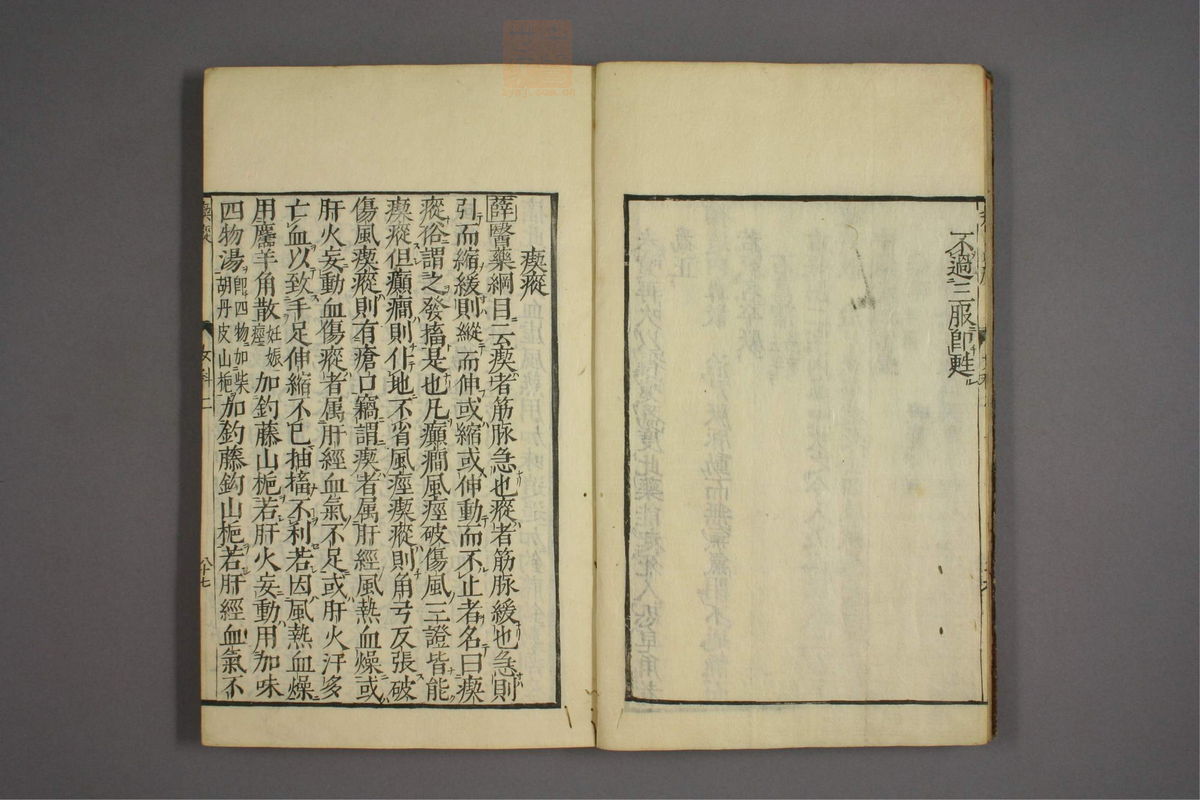 不過三服即甦
瘈瘲
薛醫藥綱目云瘈者筋脉急也瘲者筋脉緩也急則
引而縮緩則縱而伸或縮或伸動而不止者名曰瘈
瘲俗謂之發搐是也凡癲癇風痙破傷風三證皆能
瘈瘲但癲癇則仆地不省風痙瘈瘲則角弓反張破
傷風瘈瘲則有瘡口竊謂瘈者属肝經風熱血燥或
肝火妄動血傷瘲者属肝經血氣不足或肝火汗多
亡血以致手足伸縮不已抽搐不利若因風熱血燥
用羚羊角散妊娠痙加釣藤山梔若肝火妄動用加味
四物湯即四物加柴胡丹皮山梔加釣藤鈎山梔若肝經血氣不
瘈瘲 女科二 八十七